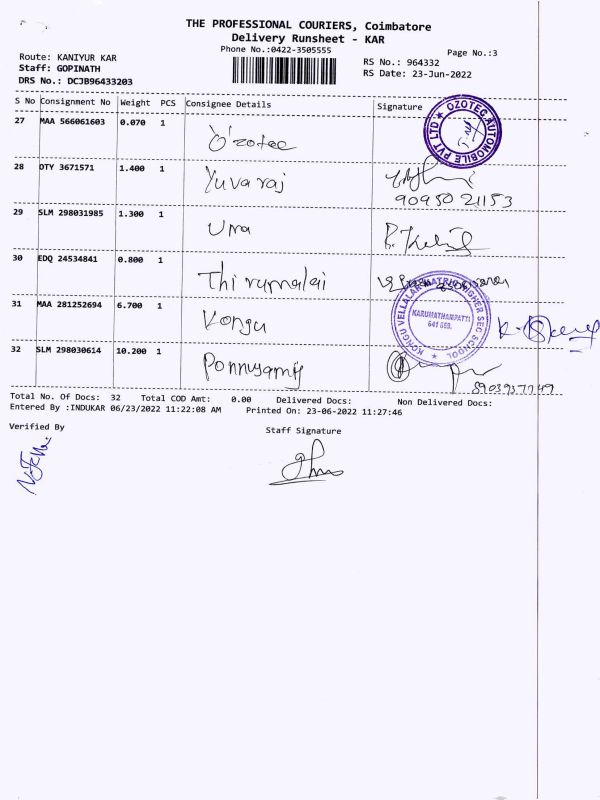 THE PROFESSIONAL COURIERS, Coimbatore
Delivery Runsheet - KAR
Phone No.:0422-3505555
Page No.:3
Route: KANIYUR KAR
RS No.: 964332
Staff: GOPINATH
RS Date: 23-Jun-2022
DRS No.: DCJB96433203
S No Consignment No Weight PCS Consignee Details Signature
27 MAA 566061603 0.070 1 O'zotec
OZOTEC AUTOMOBILE PVT LTD
28 OTY 3671571 1.400 1 Yuvaraj
9095021153
29 SLM 298031985 1.300 1 Uma
30 EDQ 24534841 0.800 1 Thirumalai
31 MAA 281252694 6.700 1 Kongu
KONGU VELLALAR MATRIC HIGHER SEC SCHOOL
KARUMATHAMPATTI
641 659.
32 SLM 298030614 10.200 1 Ponnusamy
Total No. Of Docs: 32 Total COD Amt: 0.00 Delivered Docs: Non Delivered Docs:
Entered By :INDUKAR 06/23/2022 11:22:08 AM Printed On: 23-06-2022 11:27:46
Verified By
Staff Signature